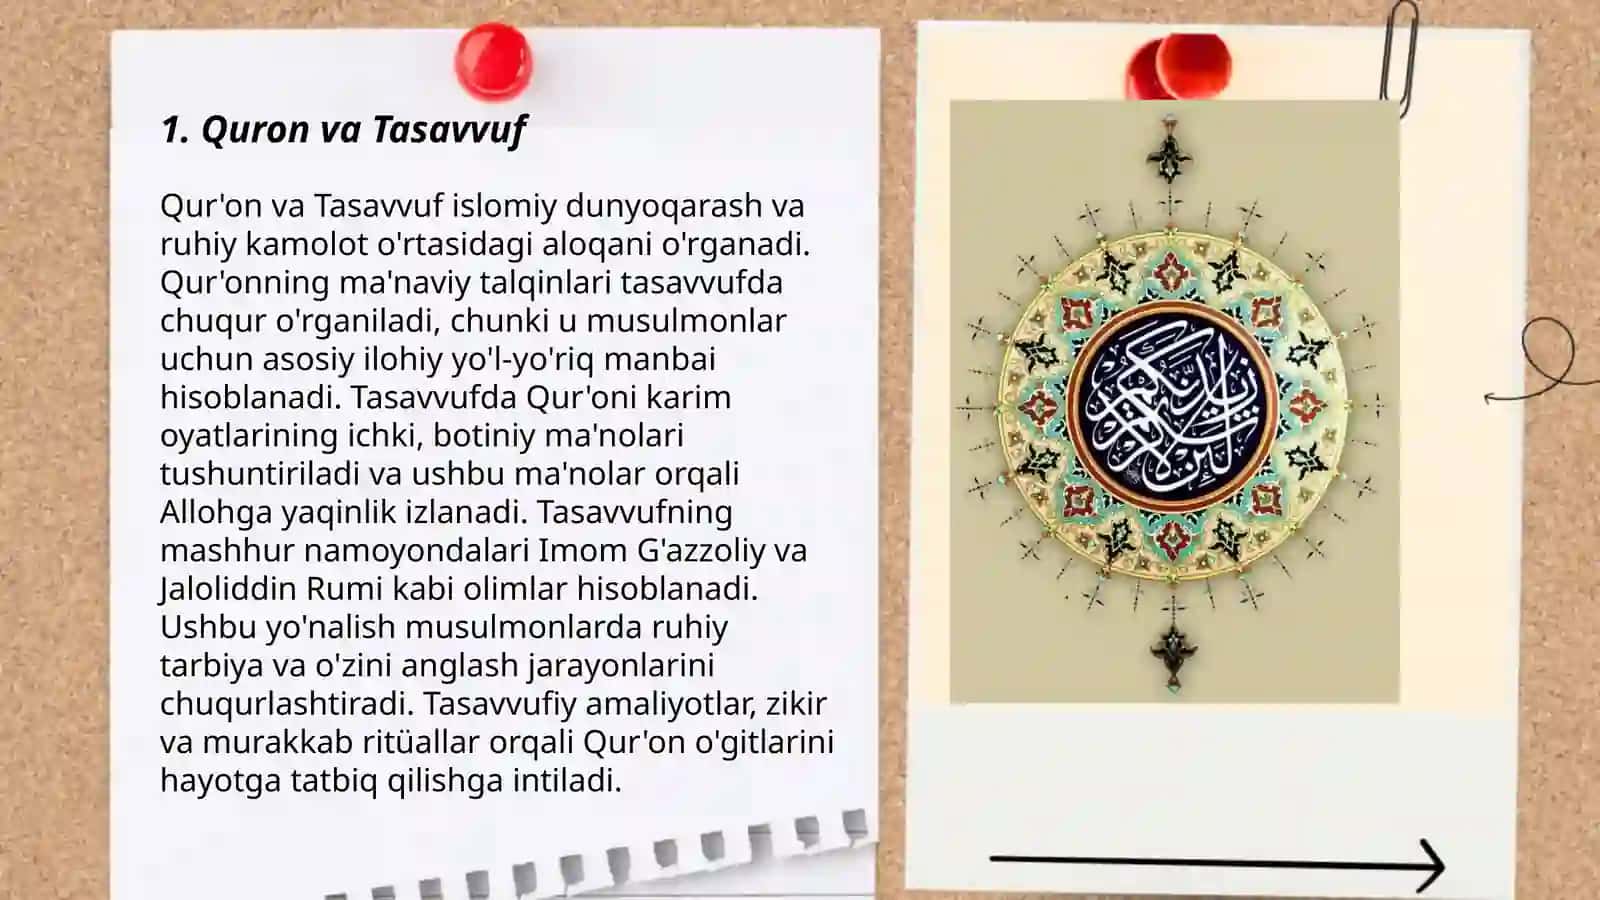 1. Quron va Tasavvuf
Qur'on va Tasavvuf islomiy dunyoqarash va
ruhiy kamolot o'rtasidagi aloqani o'rganadi.
Qur'onning ma'naviy talqinlari tasavvufda
chuqur o'rganiladi, chunki u musulmonlar
uchun asosiy ilohiy yo'l-yo'riq manbai
hisoblanadi. Tasavvufda Qur'oni karim
oyatlarining ichki, botiniy ma'nolari
tushuntiriladi va ushbu ma'nolar orqali
Allohga yaqinlik izlanadi. Tasavvufning
mashhur namoyondalari Imom G'azzoliy va
Jaloliddin Rumi kabi olimlar hisoblanadi.
Ushbu yo'nalish musulmonlarda ruhiy
tarbiya va o'zini anglash jarayonlarini
chuqurlashtiradi. Tasavvufiy amaliyotlar, zikir
va murakkab ritüallar orqali Qur'on o'gitlarini
hayotga tatbiq qilishga intiladi.
لئن شكرتم لأزيدنكم